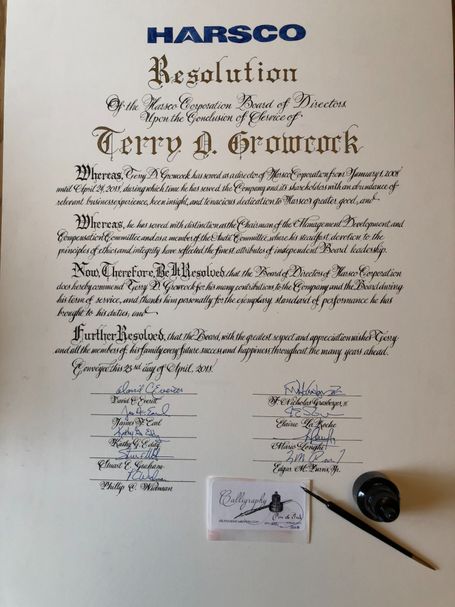 HARSCO
Resolution
Of the Harsco Corporation Board of Directors
Upon the Conclusion of Service of
Terry D. Growcock
Whereas, Terry D. Growcock has served as a director of Harsco Corporation from January 1, 2008
until April 24, 2018, during which time he has served the Company and its shareholders with an abundance of
relevant business experience, keen insight, and tenacious dedication to Harsco's greater good, and
Whereas, he has served with distinction as the Chairman of the Management Development and
Compensation Committee and as a member of the Audit Committee, where his steadfast devotion to the
principles of ethics and integrity have reflected the finest attributes of independent Board leadership.
Now, Therefore, Be It Resolved, that the Board of Directors of Harsco Corporation
does hereby commend Terry D. Growcock for his many contributions to the Company and the Board during
his term of service, and thanks him personally for the exemplary standard of performance he has
brought to his duties, and
Further Resolved, that the Board, with the greatest respect and appreciation wishes Terry
and all the members of his family every future success and happiness throughout the many years ahead.
Conveyed this 23rd day of April, 2018.
David C. Everitt
F. Nicholas Grasberger, III
James F. Earl
Elaine La Roche
Kathy G. Eddy
Mario Longhi
Stuart E. Graham
Edgar M. Purvis, Jr.
Phillip C. Widman
Calligraphy
Pen & Ink